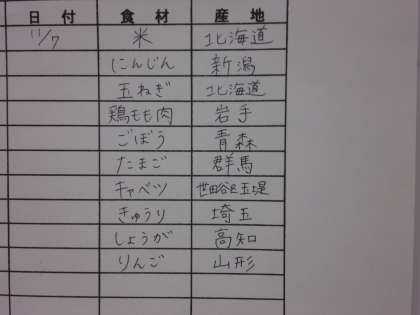 日付 食材 産地
11/7 米 北海道
にんじん 新潟
玉ねぎ 北海道
鶏もも肉 岩手
ごぼう 青森
たまご 群馬
キャベツ 世田谷区玉堤
きゅうり 埼玉
しょうが 高知
りんご 山形